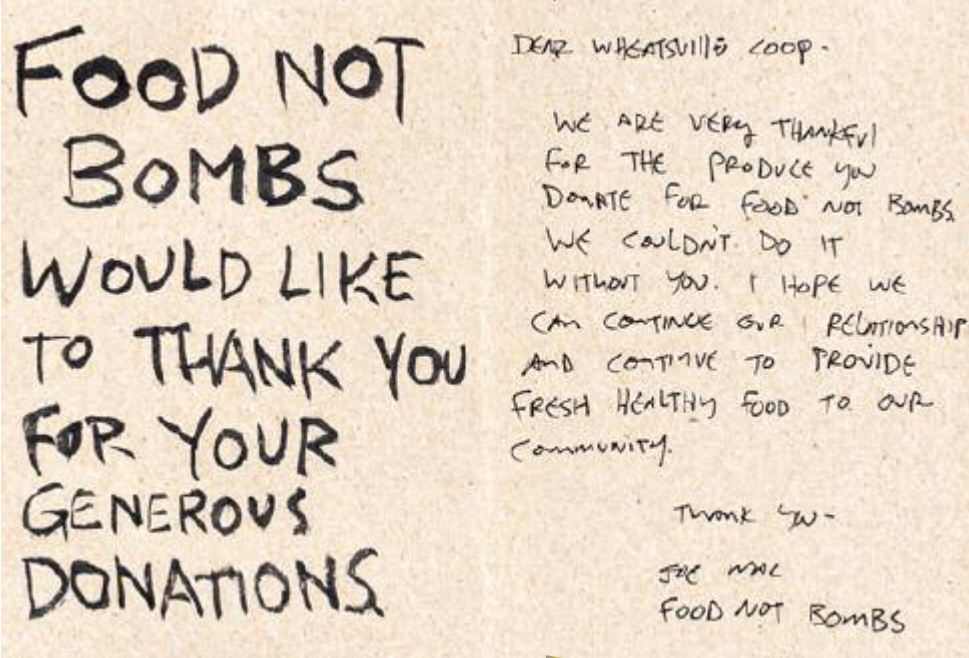 FOOD NOT
BOMBS
WOULD LIKE
TO THANK YOU
FOR YOUR
GENEROUS
DONATIONS
DEAR WHEATSVILLE COOP-
WE ARE VERY THANKFUL
FOR THE PRODUCE YOU
DONATE FOR FOOD NOT BOMBS
WE COULDN'T DO IT
WITHOUT YOU. I HOPE WE
CAN CONTINUE OUR RELATIONSHIP
AND CONTINUE TO PROVIDE
FRESH HEALTHY FOOD TO OUR
COMMUNITY.
THANK YOU-
JOE
FOOD NOT BOMBS